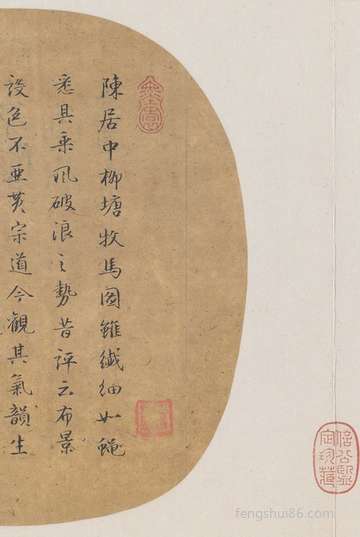 陳居中柳塘牧馬圖雖纖細如蠅
悉具乘風破浪之勢昔評云布景
設色不亞黃宗道今觀其氣韻生
fengshui86.com